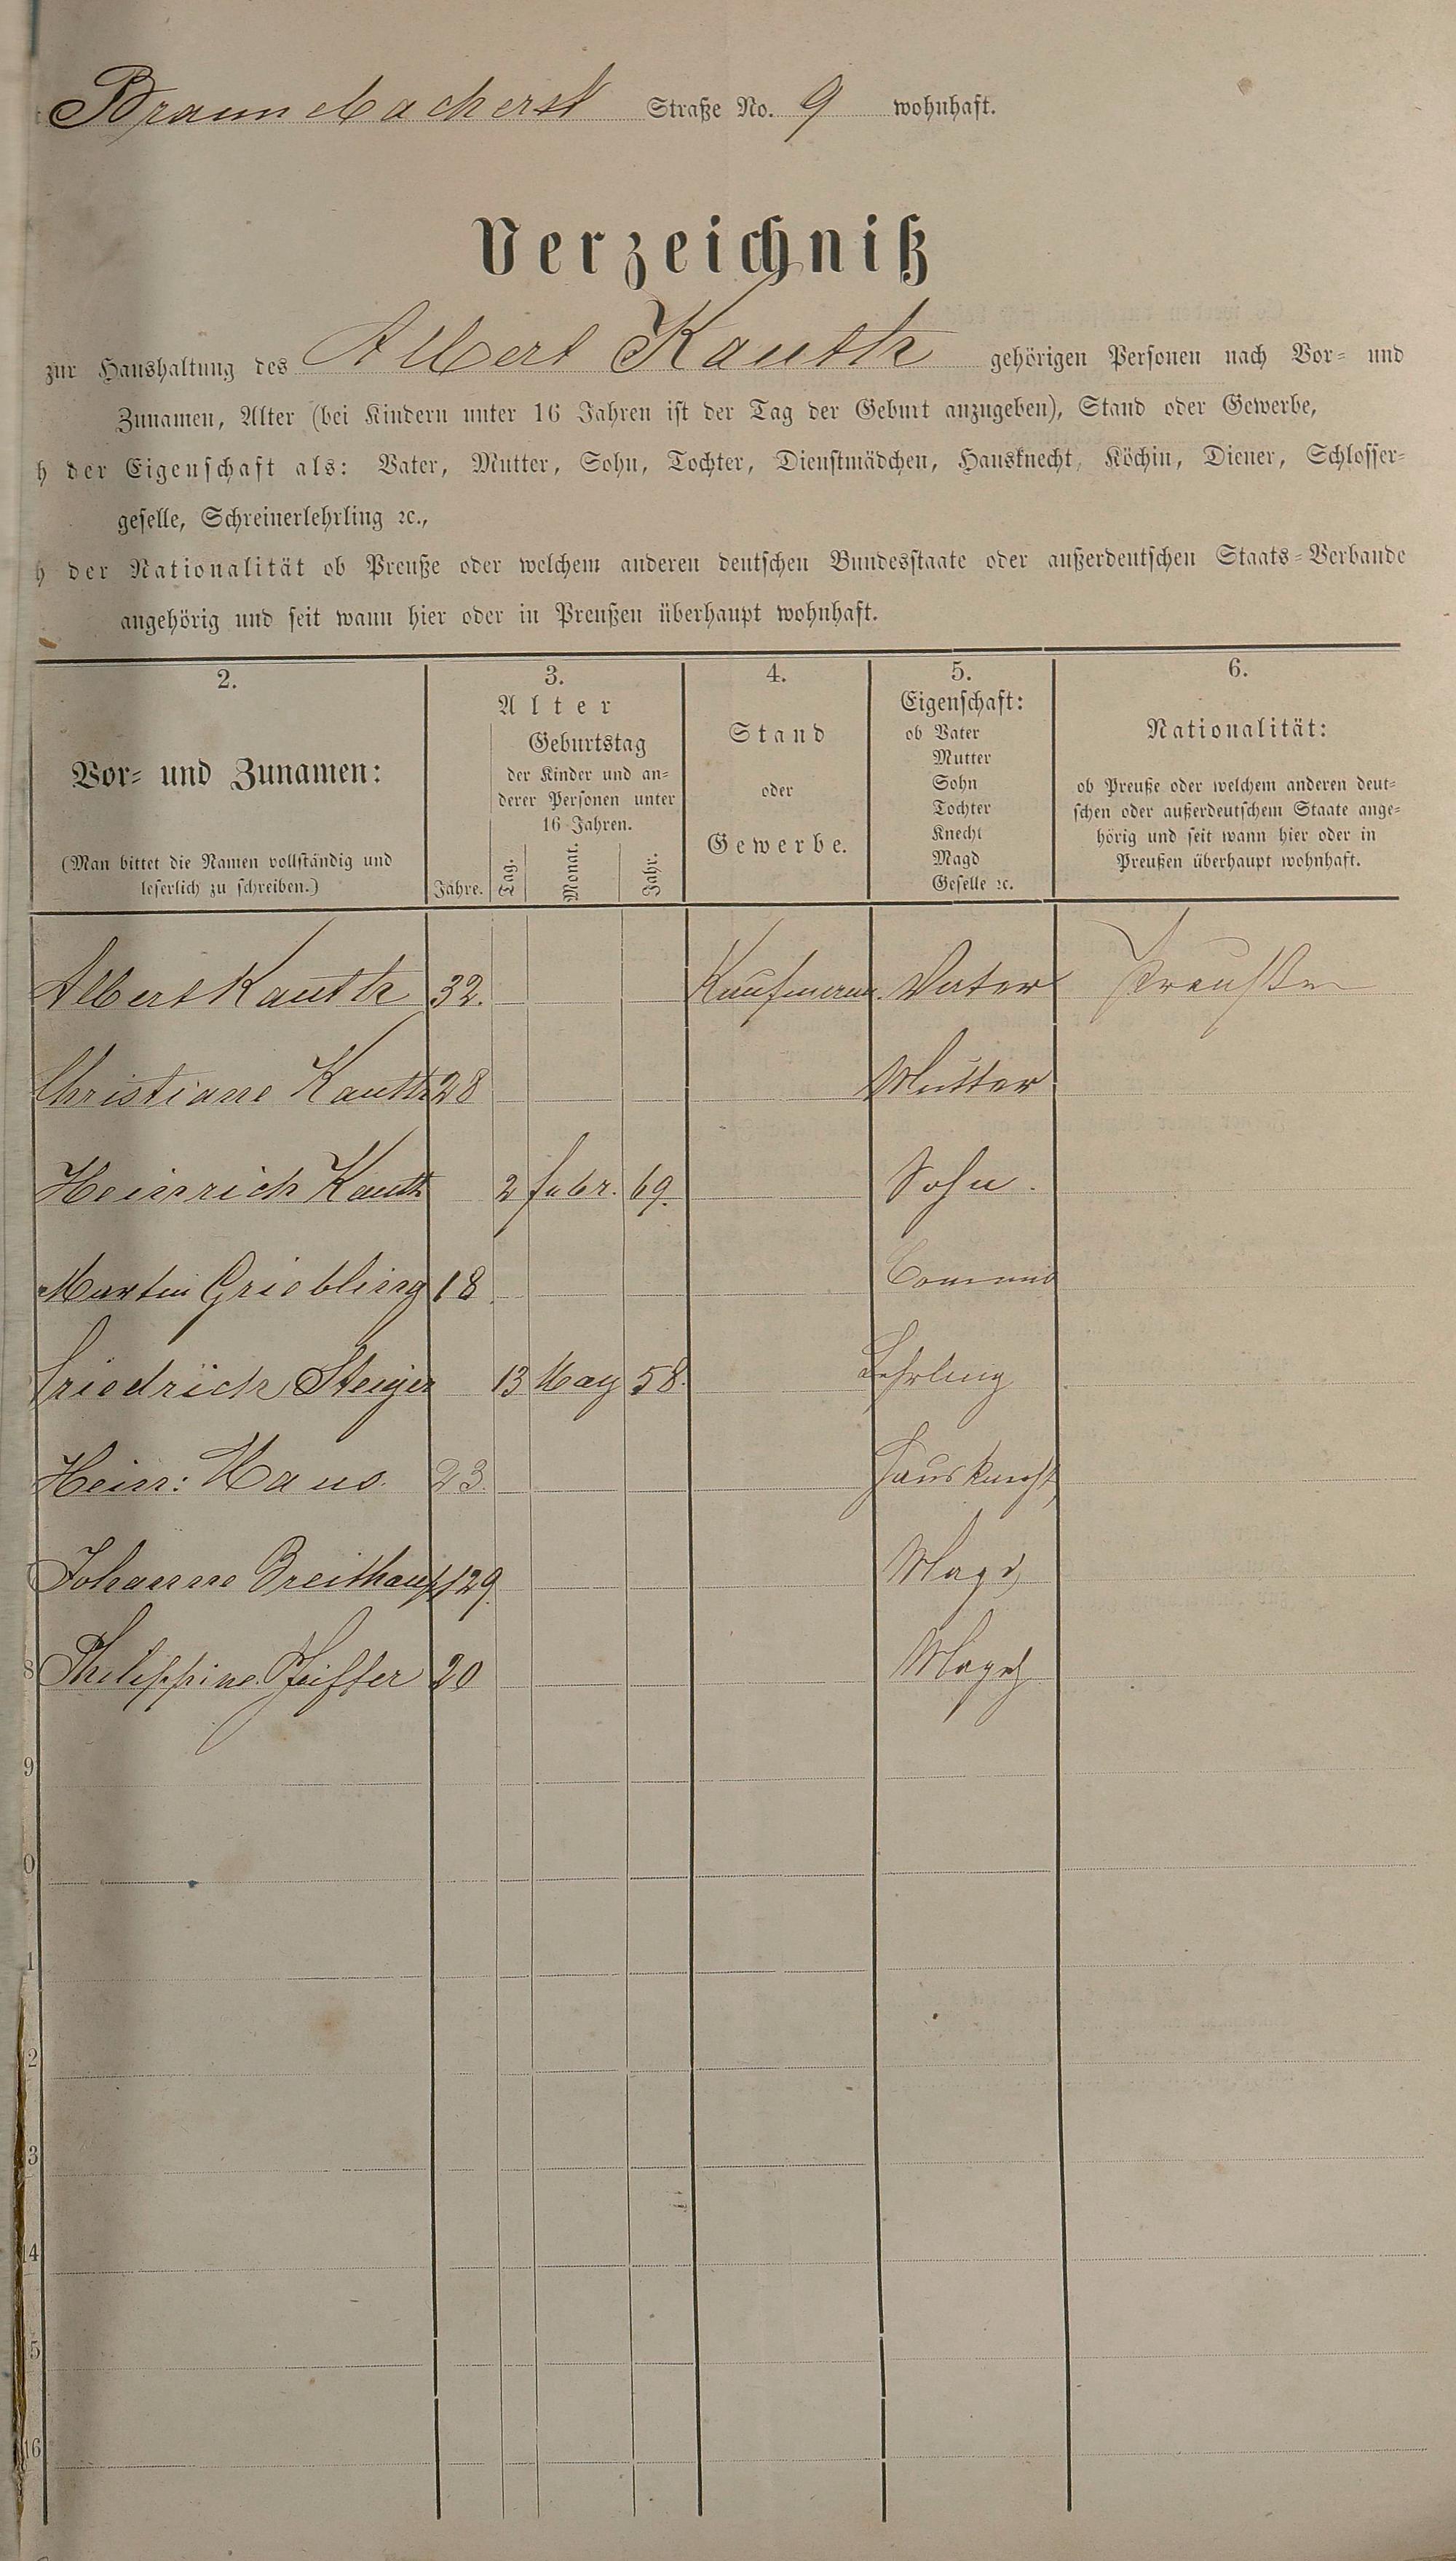 Straße No. 9 wohnhaft.
Verzeichniß
zur Haushaltung des Albert Kauth gehörigen Personen nach Vor- und
Zunamen, Alter (bei Kindern unter 16 Jahren ist der Tag der Geburt anzugeben), Stand oder Gewerbe,
der Eigenschaft als: Vater, Mutter, Sohn, Tochter, Dienstmädchen, Hausknecht, Köchin, Diener, Schlosser-
geselle, Schreinerlehrling ꝛc.,
der Nationalität ob Preuße oder welchem anderen deutschen Bundesstaate oder außerdeutschen Staats-Verbande
angehörig und seit wann hier oder in Preußen überhaupt wohnhaft.
2.
Vor- und Zunamen:
(Man bittet die Namen vollständig und
leserlich zu schreiben.)
3.
Alter
Geburtstag
der Kinder und an-
derer Personen unter
16 Jahren.
Jahre. Tag. Monat. Jahr.
4.
Stand
oder
Gewerbe.
5.
Eigenschaft:
ob Vater
Mutter
Sohn
Tochter
Knecht
Magd
Geselle ꝛc.
6.
Nationalität:
ob Preuße oder welchem anderen deut-
schen oder außerdeutschem Staate ange-
hörig und seit wann hier oder in
Preußen überhaupt wohnhaft.
Albert Kauth 32. Kaufmann. Vater Preußen
Christiane Kauth 28 Mutter
Heinrich Kauth 2 Febr. 69. Sohn.
Martin Griebling 18 Commis
Friedrich Steiger 13 May 58. Lehrling
Heinr: 23. Hausknecht
Johanne Breithaupt 29. Magd
8 Philippine Pfeiffer 20 Magd
9
0
1
2
3
14
5
16